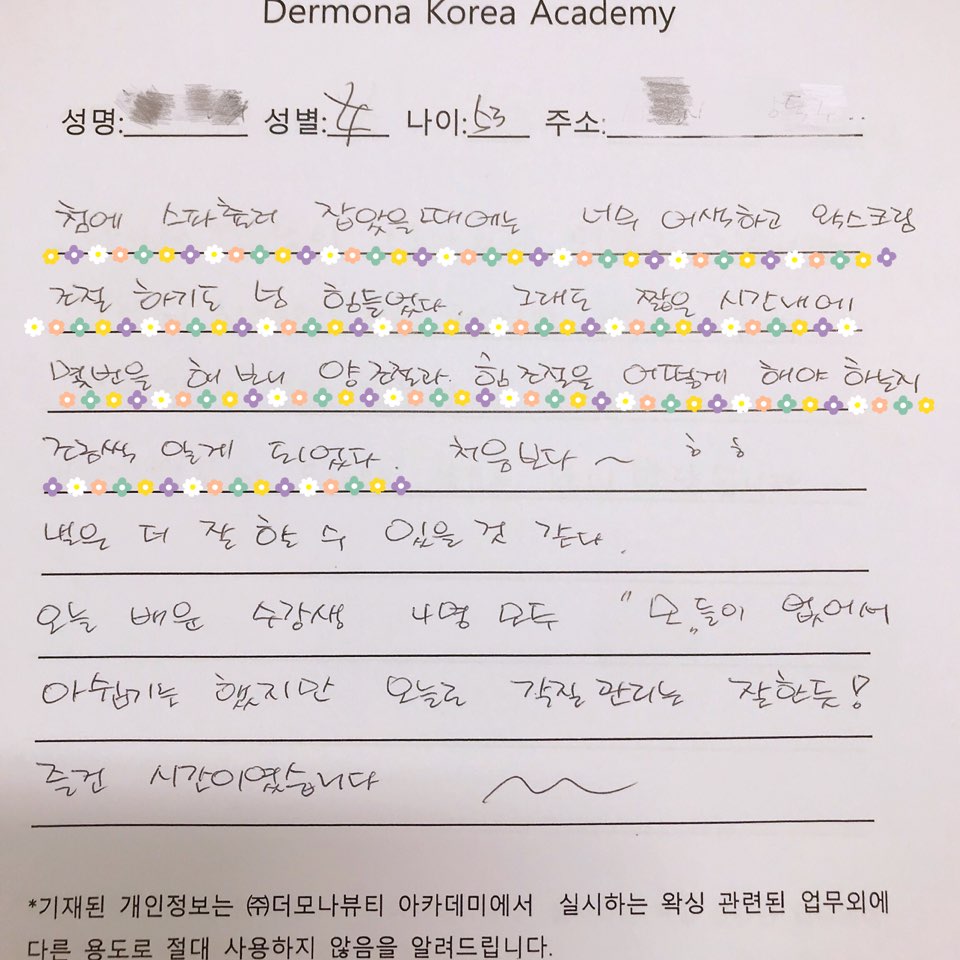 Dermona Korea Academy
성명: 성별: 女 나이: 53 주소:
첨에 스파츌러 잡았을때에는 너무 어색하고 왁스크림
조절 하기도 넘 힘들었다. 그래도 짧은 시간내에
몇번을 해 보니 양 조절과 힘 조절을 어떻게 해야 하는지
조금씩 알게 되었다. 처음보다 ~ ㅎㅎ
벌은 더 잘 할 수 있을것 같다.
오늘 배운 수강생 4명 모두 "모"들이 없어서
아쉽기는 했지만 오늘로 각질관리는 잘한듯!
즐건 시간이였습니다
*기재된 개인정보는 ㈜더모나뷰티 아카데미에서 실시하는 왁싱 관련된 업무외에
다른 용도로 절대 사용하지 않음을 알려드립니다.